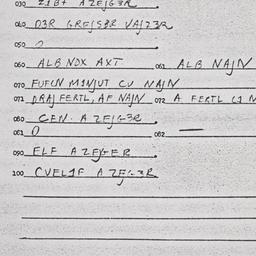 030 Z1B7 A ZEJG3R
040 D3R GREJS3R VAJZ3R
050
060 ALB NDX AXT 061 ALB NAJN
070 FUFUN M1NJUT CU NAJN
071 DRAJ FERTL, AF NAJN 072 A FERTL CJ N
080 CEN. A ZEJG3R
081 O 082 —
090 ELF A ZEJGER
100 CVEL1F A ZEJG3R